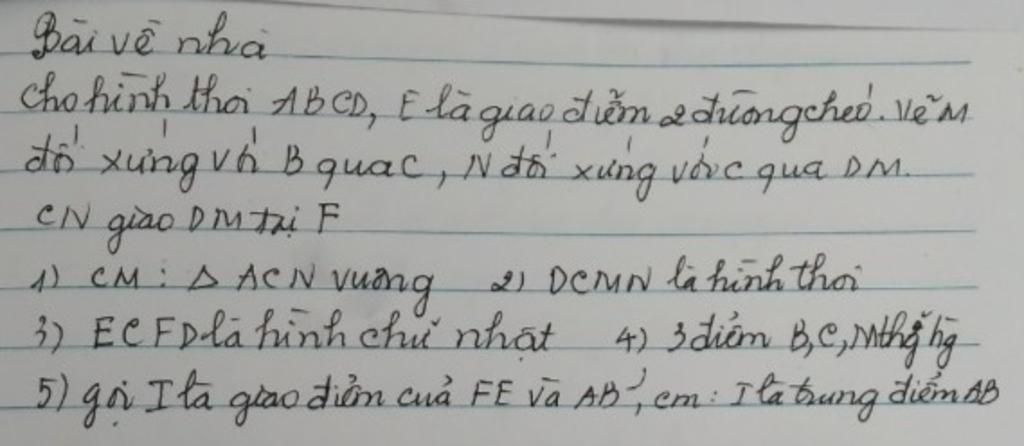 Bài về nhà
Cho hình thoi ABCD, E là giao điểm 2 đường chéo. Vẽ M
đối xứng với B qua C, N đối xứng với C qua DM.
CN giao DM tại F
1) CM: Δ ACN vuông 2) DCMN là hình thoi
3) ECFD là hình chữ nhật 4) 3 điểm B,C,M thg hg
5) gọi I là giao điểm của FE và AB, cm: I là trung điểm AB